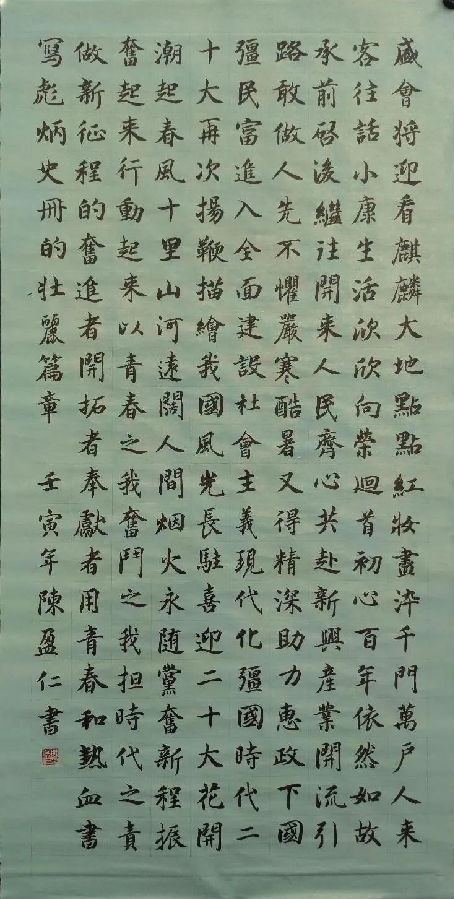 盛會將迎看麒麟大地點點紅妝盡淬千門萬戶人來
客往話小康生活欣欣向榮迴首初心百年依然如故
承前啓後繼往開來人民齊心共赴新興產業開流引
路敢做人先不懼嚴寒酷暑又得精深助力惠政下國
彊民富進入全面建設社會主義現代化彊國時代二
十大再次揚鞭描繪我國風光長駐喜迎二十大花開
潮起春風十里山河遠闊人間烟火永随黨奮新程振
奮起來行動起來以青春之我奮鬥之我担時代之責
做新征程的奮進者開拓者奉獻者用青春和熱血書
寫彪炳史冊的壯麗篇章 壬寅年陳盈仁書